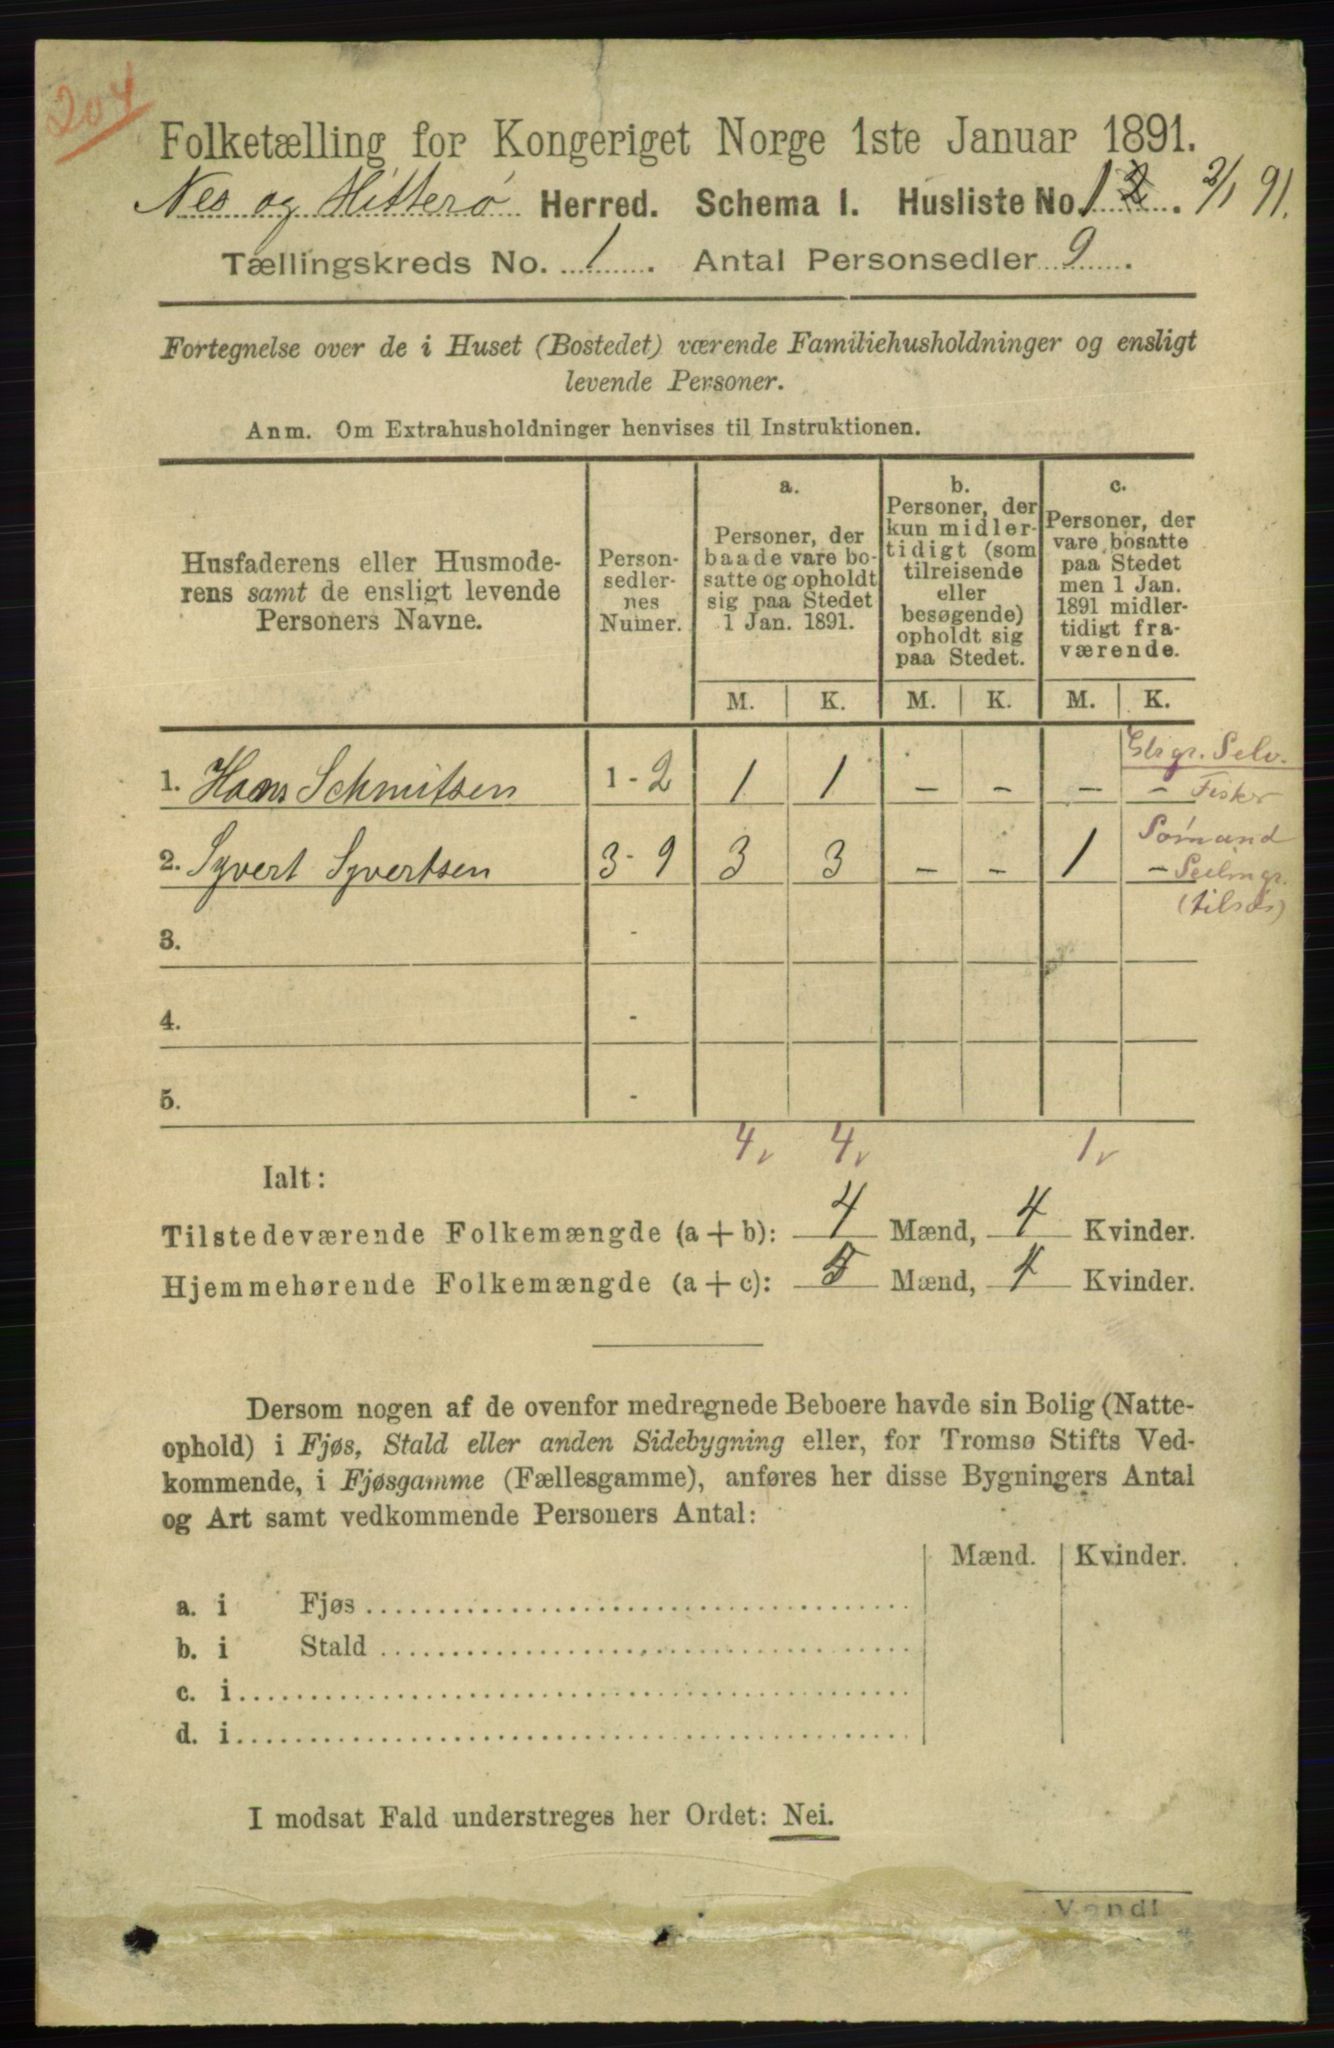 204
Folketælling for Kongeriget Norge 1ste Januar 1891.
Nes og Hitterø Herred. Schema I. Husliste No. 12. 2/1 91.
Tællingskreds No. 1. Antal Personsedler 9.
Fortegnelse over de i Huset (Bostedet) værende Familiehusholdninger og ensligt
levende Personer.
Anm. Om Extrahusholdninger henvises til Instruktionen.
Husfaderens eller Husmode-
rens samt de ensligt levende
Personers Navne.
Person-
sedler-
nes
Numer.
a.
Personer, der
baade vare bo-
satte og opholdt
sig paa Stedet
1 Jan. 1891.
b.
Personer, der
kun midler-
tidigt (som
tilreisende
eller
besøgende)
opholdt sig
paa Stedet.
c.
Personer, der
vare bosatte
paa Stedet
men 1 Jan.
1891 midler-
tidigt fra-
værende.
M. K. M. K. M. K.
1. Hans Schmitsen 1-2 1 1 - - - - Selv.
Fisker
2. Syvert Syvertsen 3-9 3 3 - - 1 - Sømand
(tilsøs)
3. -
4. -
5. -
4 4 1
Ialt:
Tilstedeværende Folkemængde (a+b): 4 Mænd, 4 Kvinder.
Hjemmehørende Folkemængde (a+c): 5 Mænd, 4 Kvinder.
Dersom nogen af de ovenfor medregnede Beboere havde sin Bolig (Natte-
ophold) i Fjøs, Stald eller anden Sidebygning eller, for Tromsø Stifts Ved-
kommende, i Fjøsgamme (Fællesgamme), anføres her disse Bygningers Antal
og Art samt vedkommende Personers Antal:
Mænd. Kvinder.
a. i Fjøs
b. i Stald
c. i
d. i
I modsat Fald understreges her Ordet: Nei.
Vend!